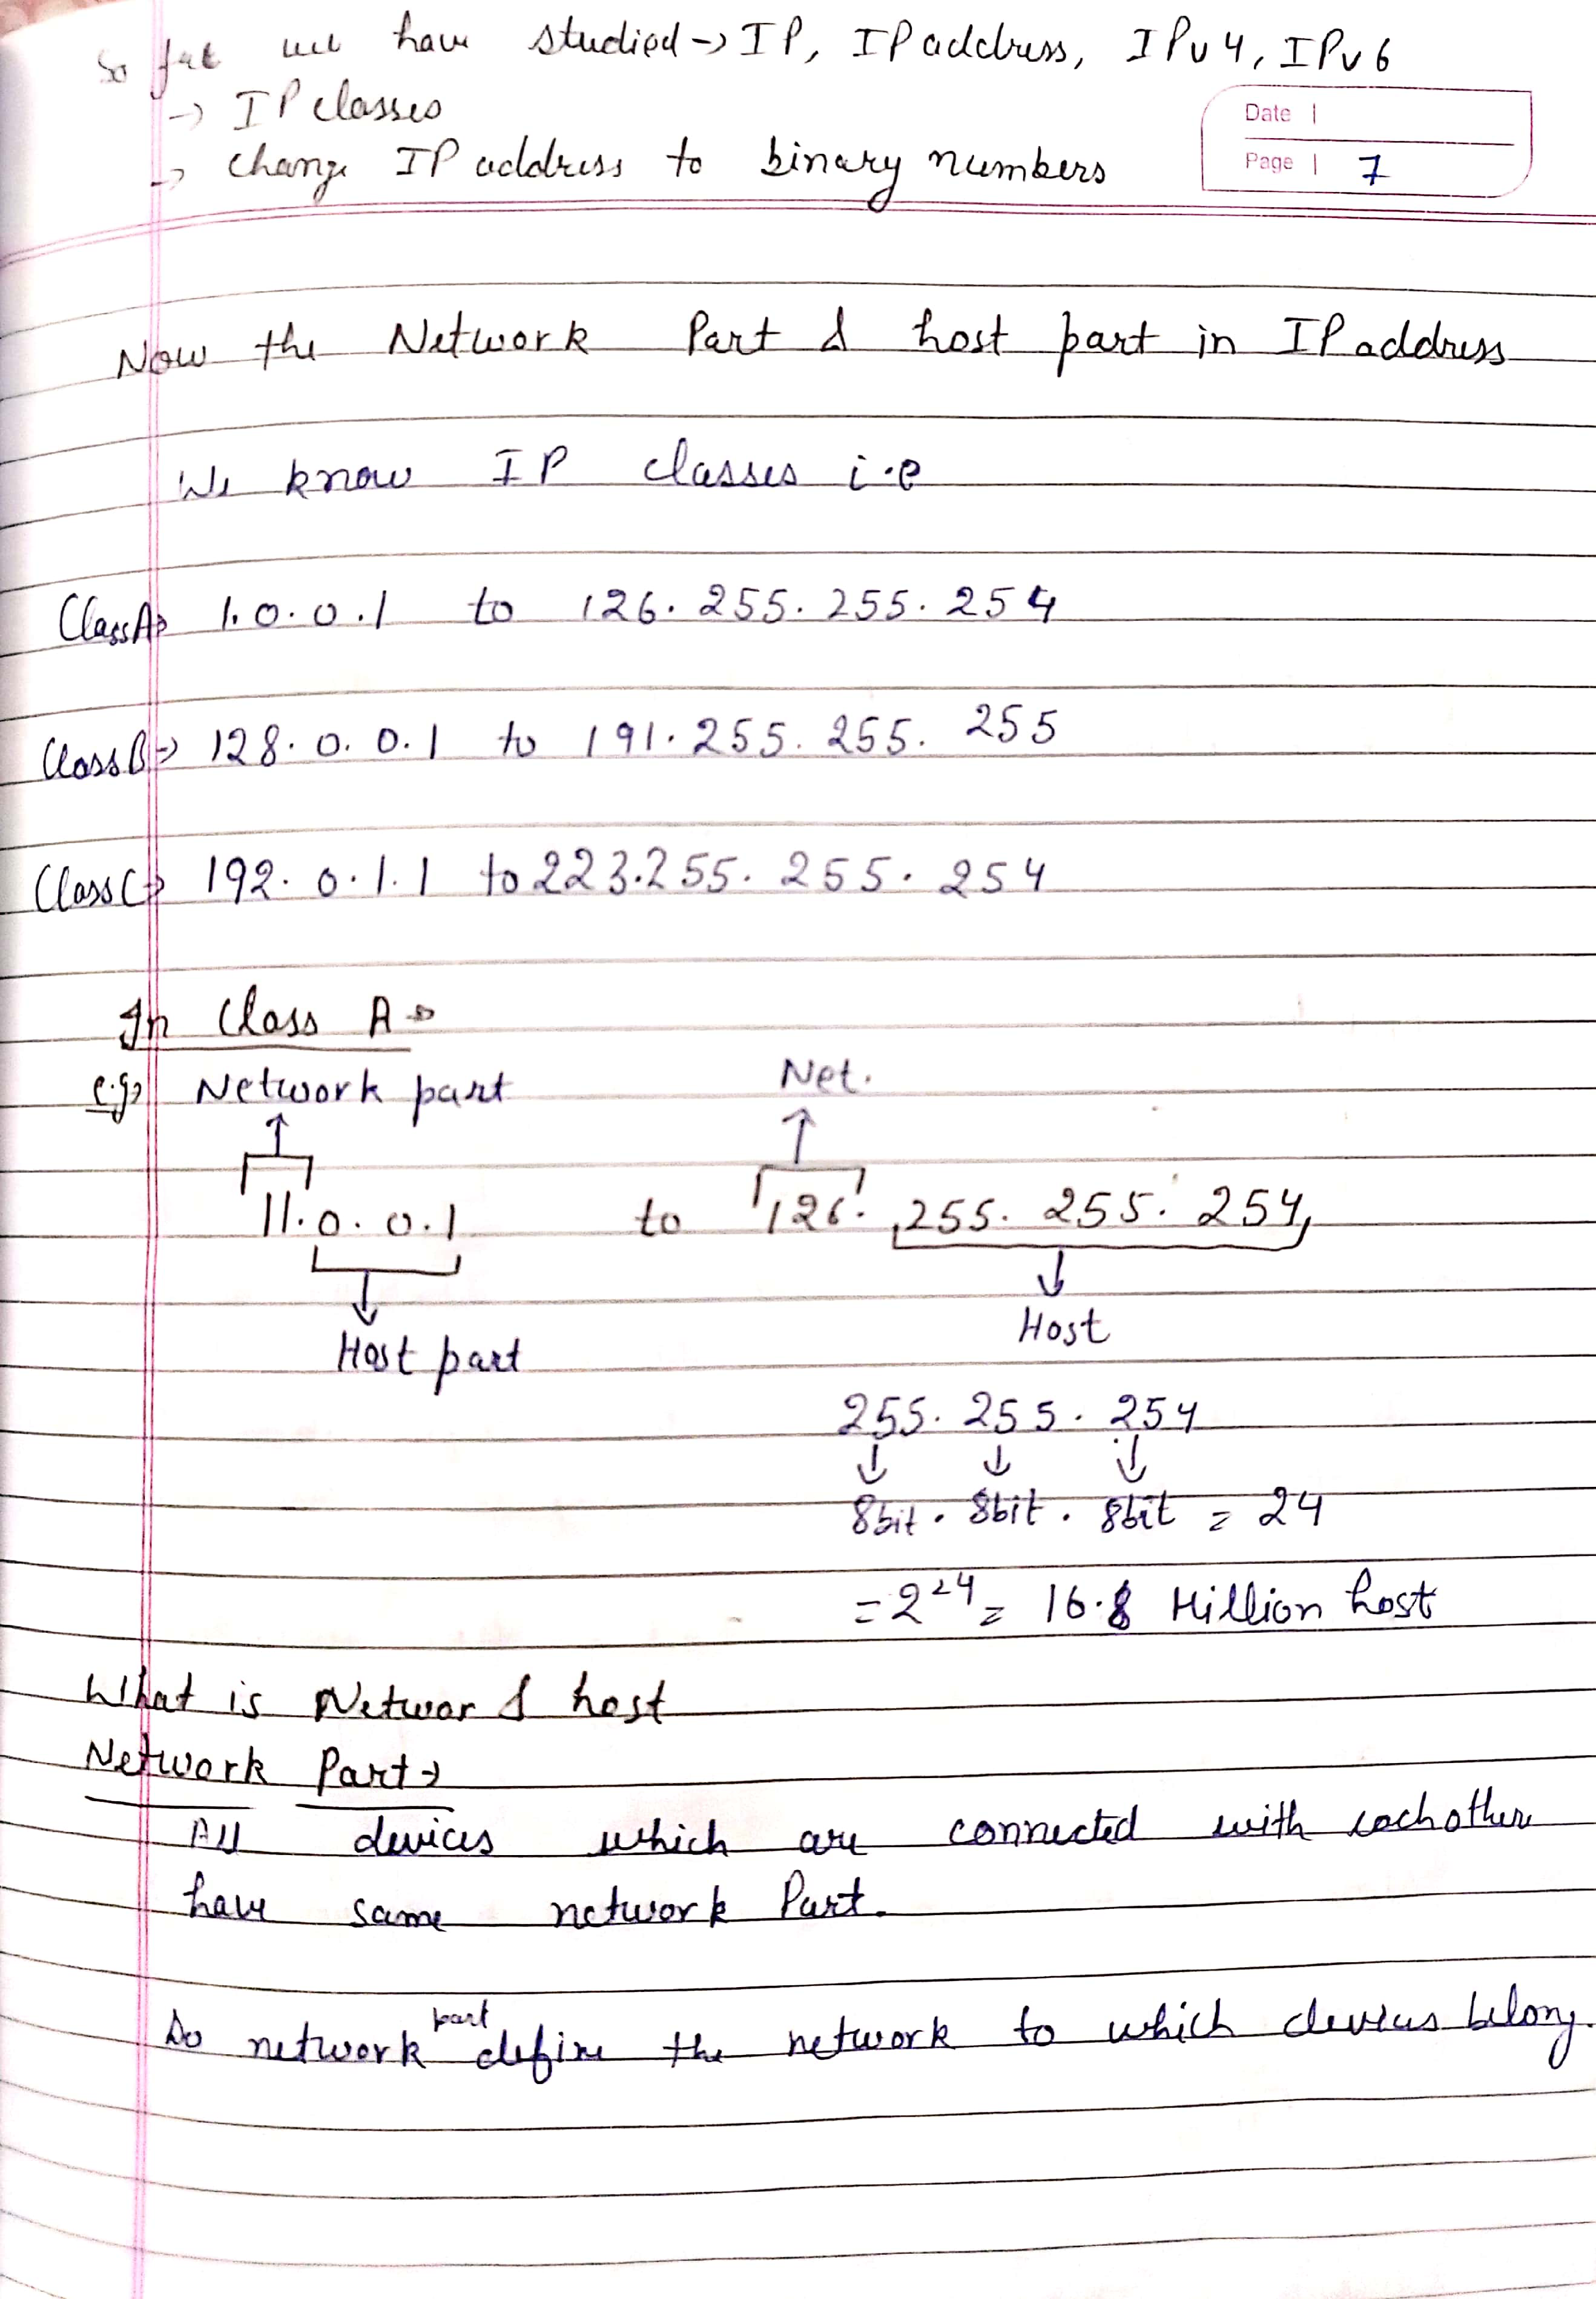 So far we have studied → IP, IP address, IPv4, IPv6
→ IP classes
→ change IP address to binary numbers
Date
Page 7
Now the Network Part & host part in IP address
We know IP classes i.e
Class A→ 1.0.0.1 to 126.255.255.254
Class B→ 128.0.0.1 to 191.255.255.255
Class C→ 192.0.1.1 to 223.255.255.254
In Class A→
e.g→ Network part Net.
11.0.0.1 to 126.255.255.254
Host part Host
255.255.254
8bit. 8bit. 8bit = 24
= 2²⁴ = 16.8 Million host
What is Networ & host
Network Part→
All devices which are connected with eachother
have same network Part.
So network part define the network to which devices belong.